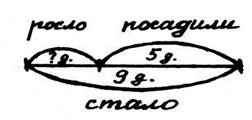 росло посадили
? д. 5 д.
9 д.
стало